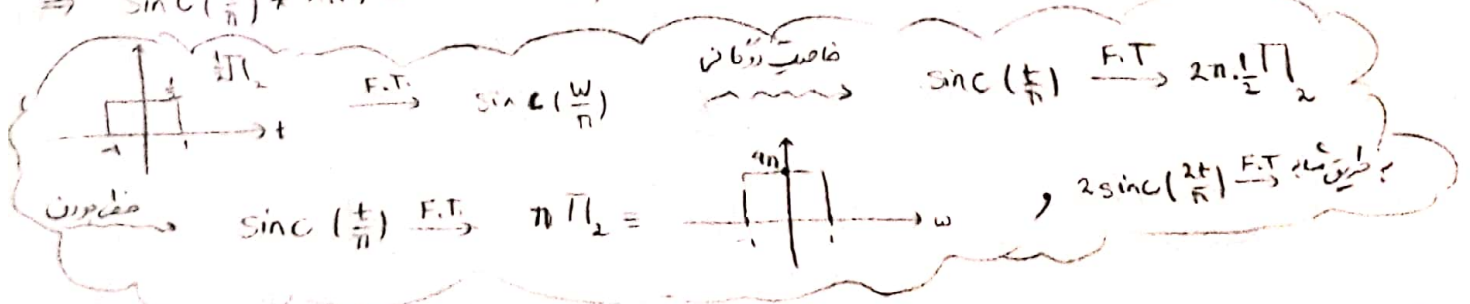 ⇒ sinc(
½Π₂ F.T. → sinc(ω/π) خاصیت دوگانی sinc(t/π) F.T → 2π.½Π₂
t
-1 1
خطی بودن sinc(t/π) F.T. → πΠ₂ = ω , 2sinc(2t/π) F.T → به طریق مشابه
-1 1